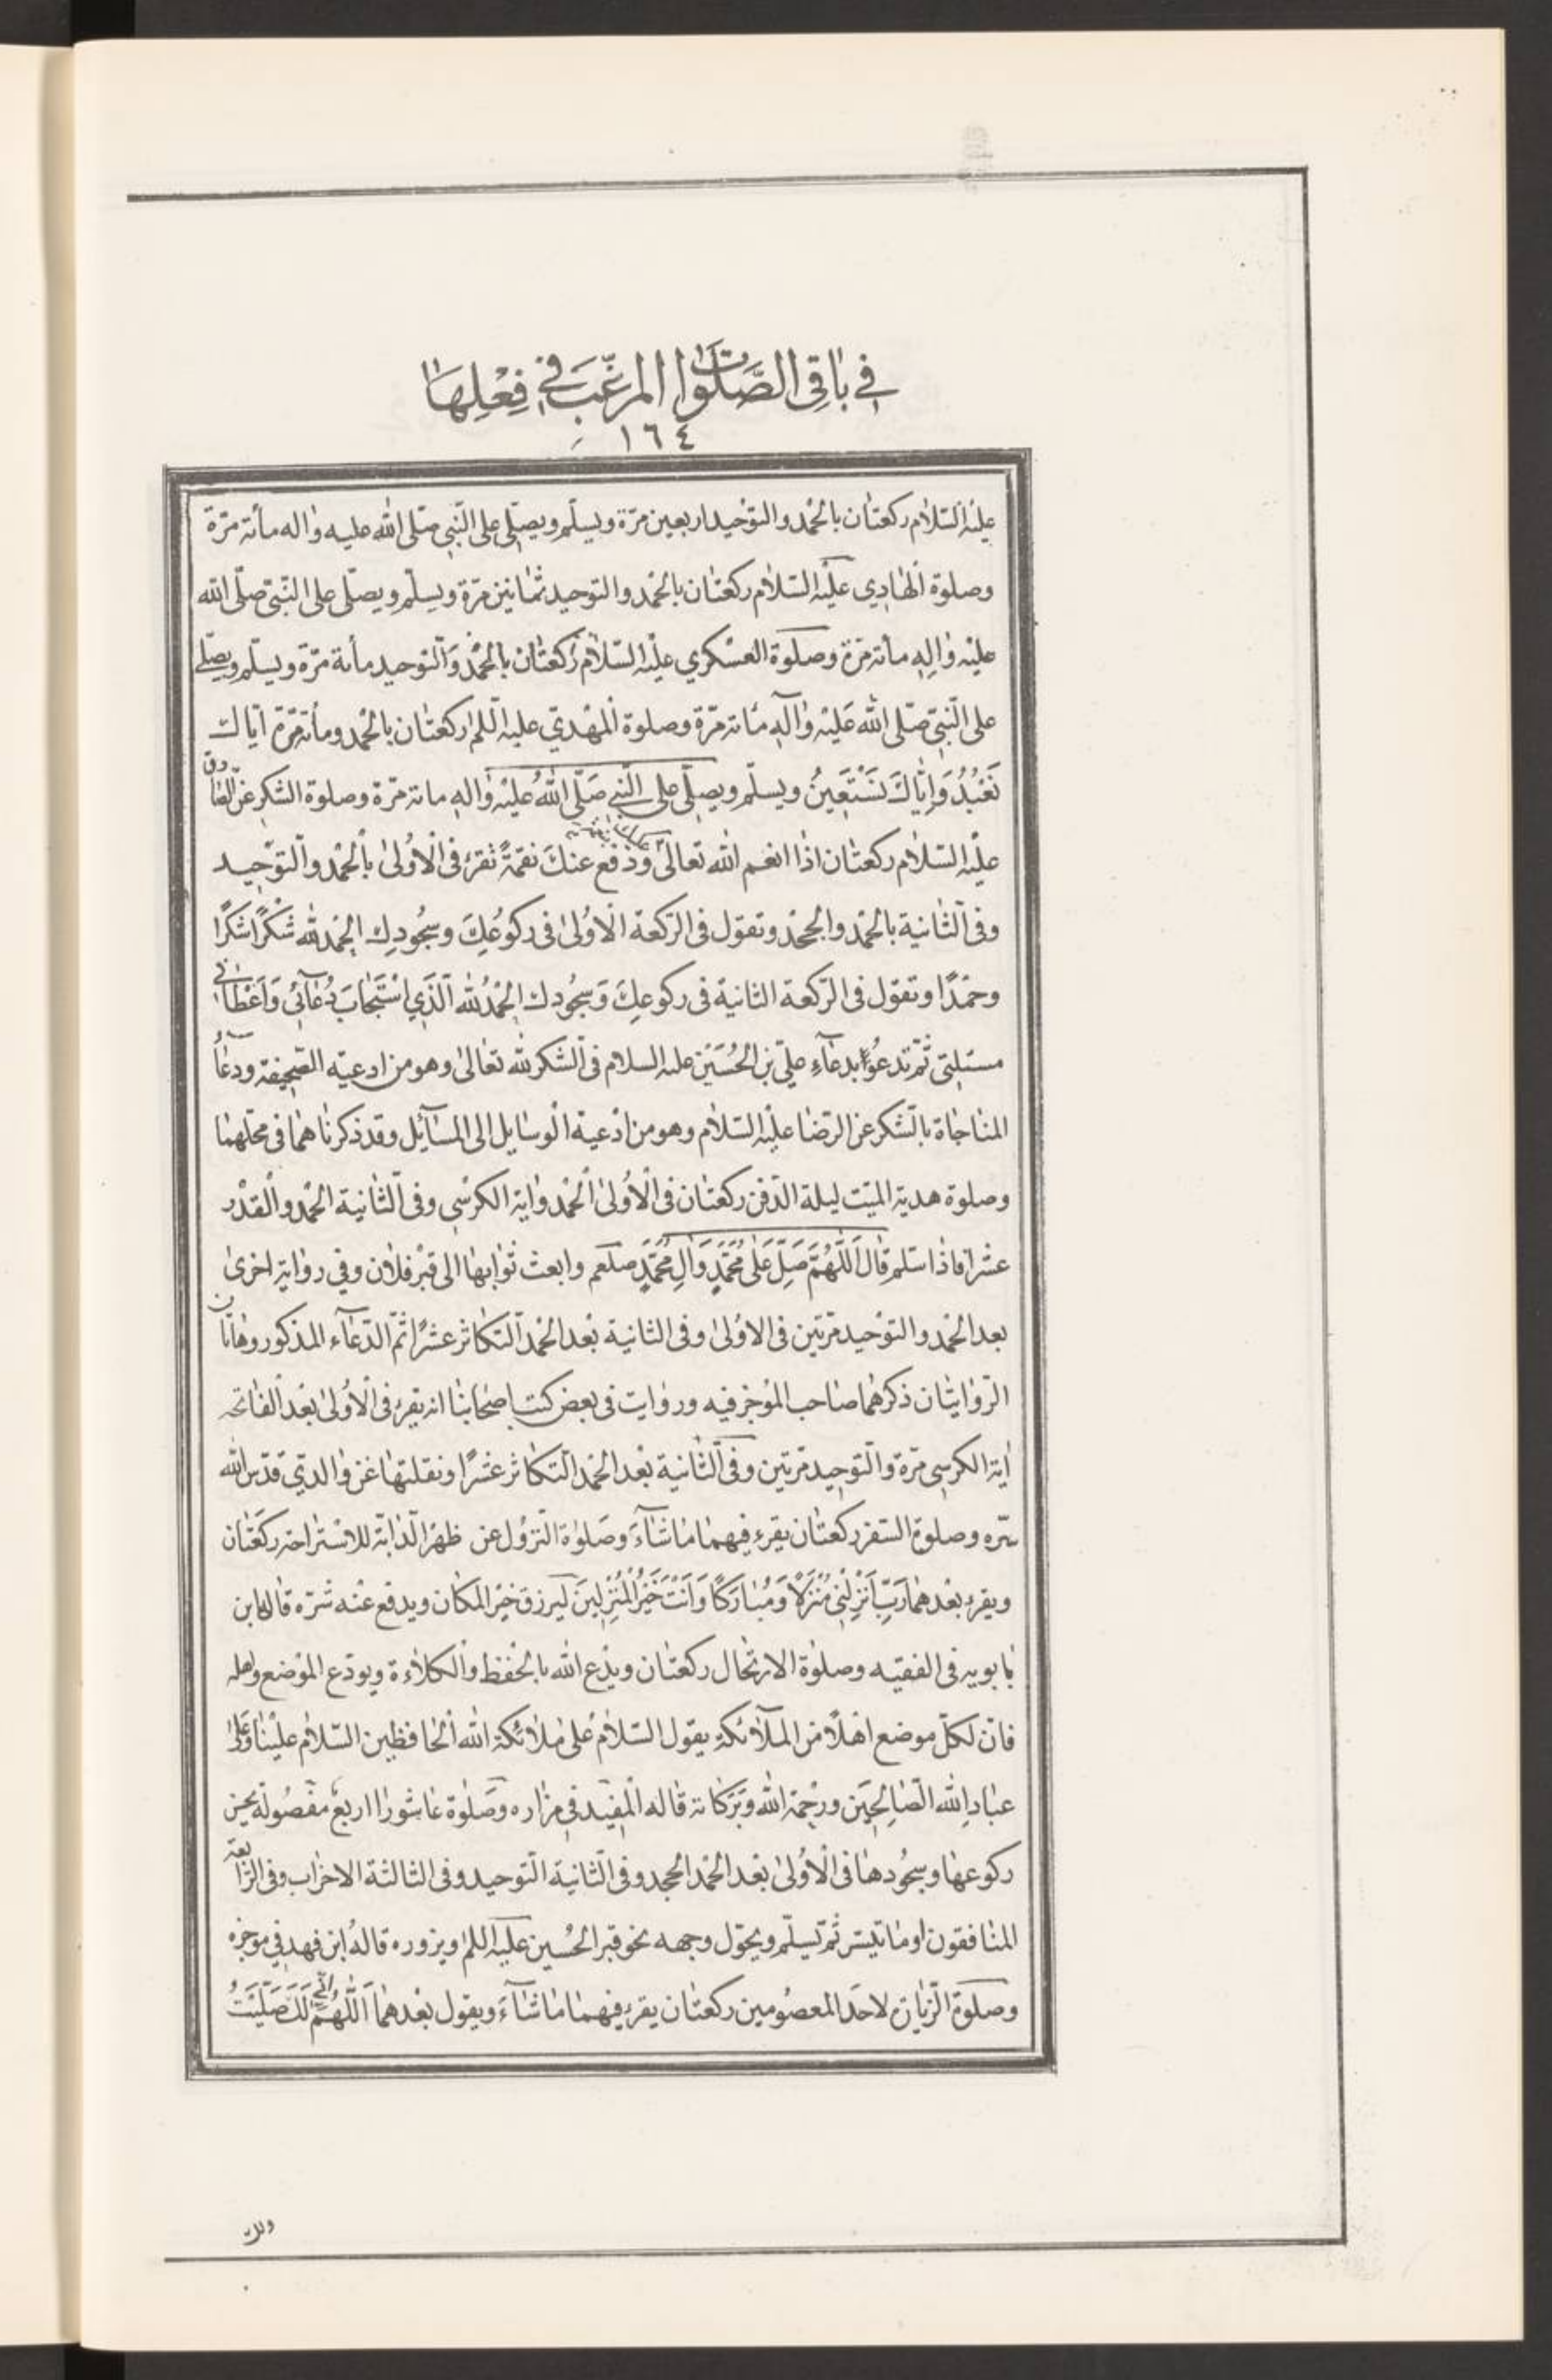 في باقي الصلوات المرغب في فعلها
١٦٤
عليه السلام ركعتان بالحمد والتوحيد اربعين مرة ويسلم ويصلي على النبي صلى الله عليه واله مأتة مرة
وصلوة الهادي عليه السلام ركعتان بالحمد والتوحيد ثمانين مرة ويسلم ويصلى على النبي صلى الله
عليه واله مأته مرة وصلوة العسكري عليه السلام ركعتان بالحمد والتوحيد مأية مرة ويسلم ويصلى
على النبي صلى الله عليه وآله مائه مرة وصلوة المهدي عليه اللم ركعتان بالحمد ومأته مرة اياك
نعبد واياك نستعين ويسلم ويصلى على النبي صلى الله عليه واله مائه مرة وصلوة الشكر عن الصادق
عليه السلام ركعتان اذا انعم الله تعالى ودفع عنك نقمة تقرء فى الاولى بالحمد والتوحيد
وفى الثانية بالحمد والجحد وتقول فى الركعة الاولى فى ركوعك وسجودك الحمد لله شكرا شكرا
وحمدا وتقول فى الركعة الثانية فى ركوعك وسجودك الحمد لله الذي استجاب دعائي واعطاني
مسئلتي ثم تدعو بدعاء علي بن الحسين عليه السلام فى الشكر لله تعالى وهو من ادعية الصحيفة ودعاء
المناجاة بالشكر عن الرضا عليه السلام وهو من ادعية الوسايل الى المسائل وقد ذكرناهما فى محلهما
وصلوة هدية الميت ليلة الدفن ركعتان فى الاولى الحمد واية الكرسي وفى الثانية الحمد والقدر
عشرا فاذا سلم قال اللهم صل على محمد وال محمد صلعم وابعث ثوابها الى قبر فلان وفي رواية اخرى
بعد الحمد والتوحيد مرتين فى الاولى وفى الثانية بعد الحمد التكاثر عشرا ثم الدعاء المذكور وهاتان
الروايتان ذكرهما صاحب الموجز فيه وروايت فى بعض كتب اصحابنا انه يقرء فى الاولى بعد الفاتحه
اية الكرسي مرة والتوحيد مرتين وفى الثانية بعد الحمد التكاثر عشرا ونقلتها عن والدي قدس الله
سره وصلوة السفر ركعتان يقرء فيهما ما شاء وصلوة النزول عن ظهر الدابة للاستراحة ركعتان
ويقرء بعدهما رب انزلني منزلا ومباركا وانت خير المنزلين ليرزق خير المكان ويدفع عنه شره قاله ابن
بابويه فى الفقيه وصلوة الارتحال ركعتان ويدع الله بالحفظ والكلاءة ويودع الموضع واهله
فان لكل موضع اهلا من الملائكة يقول السلام على ملائكة الله الحافظين السلام علينا وعلى
عباد الله الصالحين ورحمة الله وبركاته قاله المفيد في مزاره وصلوة عاشورا اربع مفصوله يحسن
ركوعها وسجودها فى الاولى بعد الحمد الجحد وفى الثانية التوحيد وفى الثالثة الاحزاب وفى الرابعة
المنافقون او ما تيسر ثم تسلم ويحول وجهه نحو قبر الحسين عليه اللم ويزوره قاله ابن فهد في موجزه
وصلوة الزيارة لاحد المعصومين ركعتان يقرء فيهما ما شاء ويقول بعدهما اللهم اني لك صليت
ولك